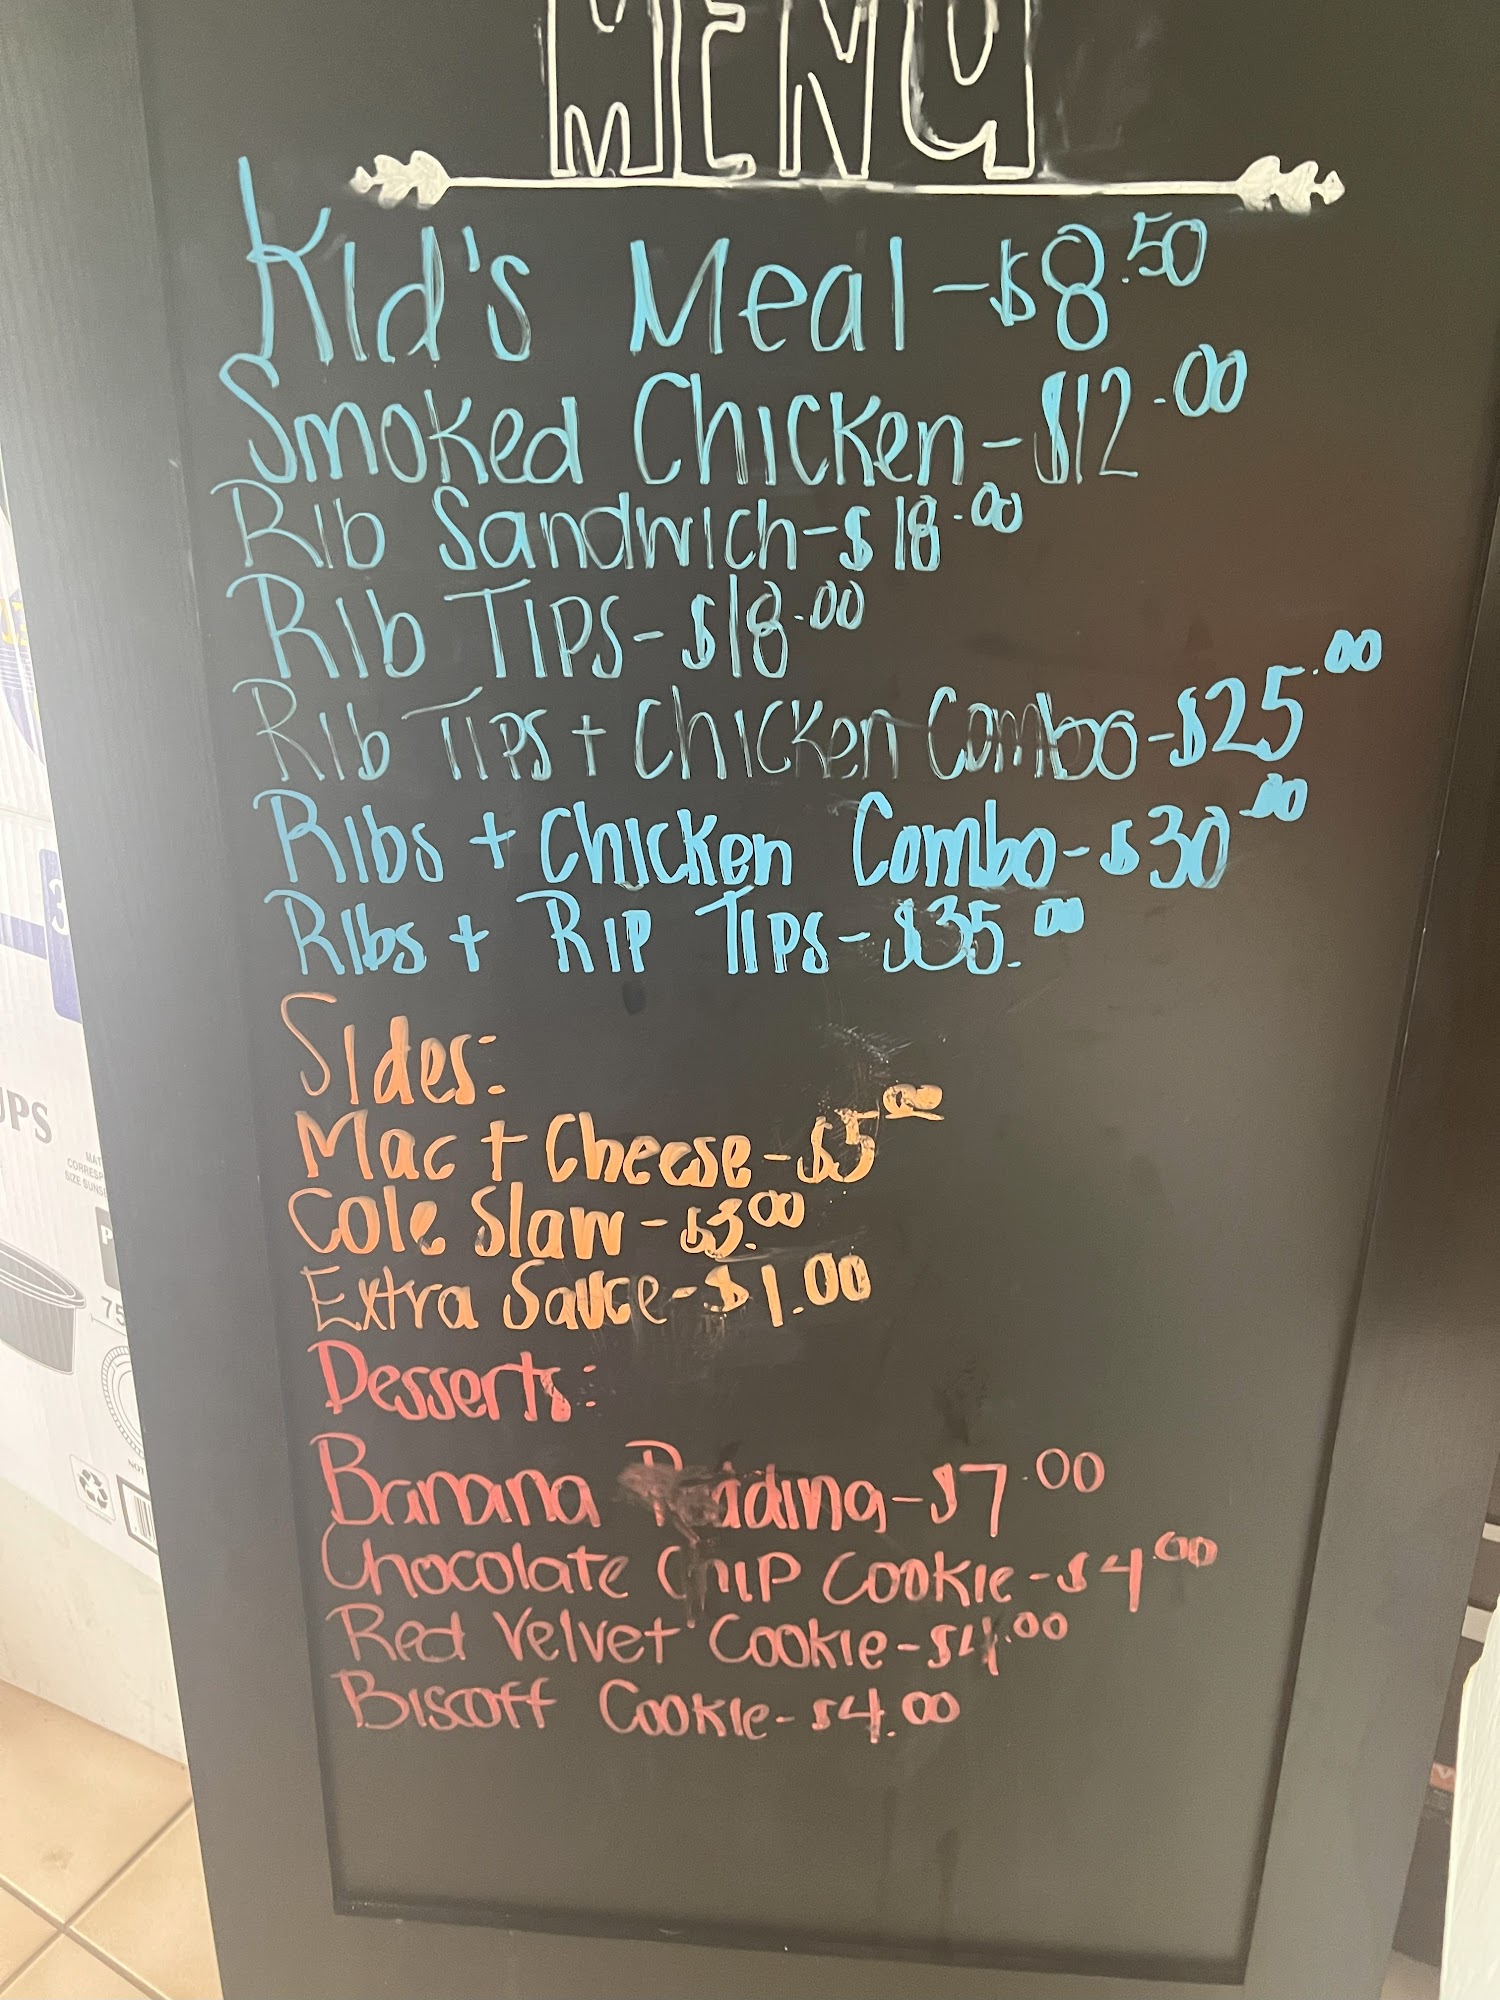 MENU
Kid's Meal - $8.50
Smoked Chicken - $12.00
Rib Sandwich - $18.00
Rib Tips - $18.00
Rib Tips + Chicken Combo - $25.00
Ribs + Chicken Combo - $30.00
Ribs + Rip Tips - $35.00
Sides:
Mac + Cheese - $5.00
Cole Slaw - $3.00
Extra Sauce - $1.00
Desserts:
Banana Pudding - $7.00
Chocolate Chip Cookie - $4.00
Red Velvet Cookie - $4.00
Biscoff Cookie - $4.00
UPS